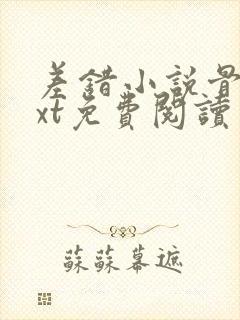 差錯小說骨
xt免費閱讀
蘇蘇幕遮